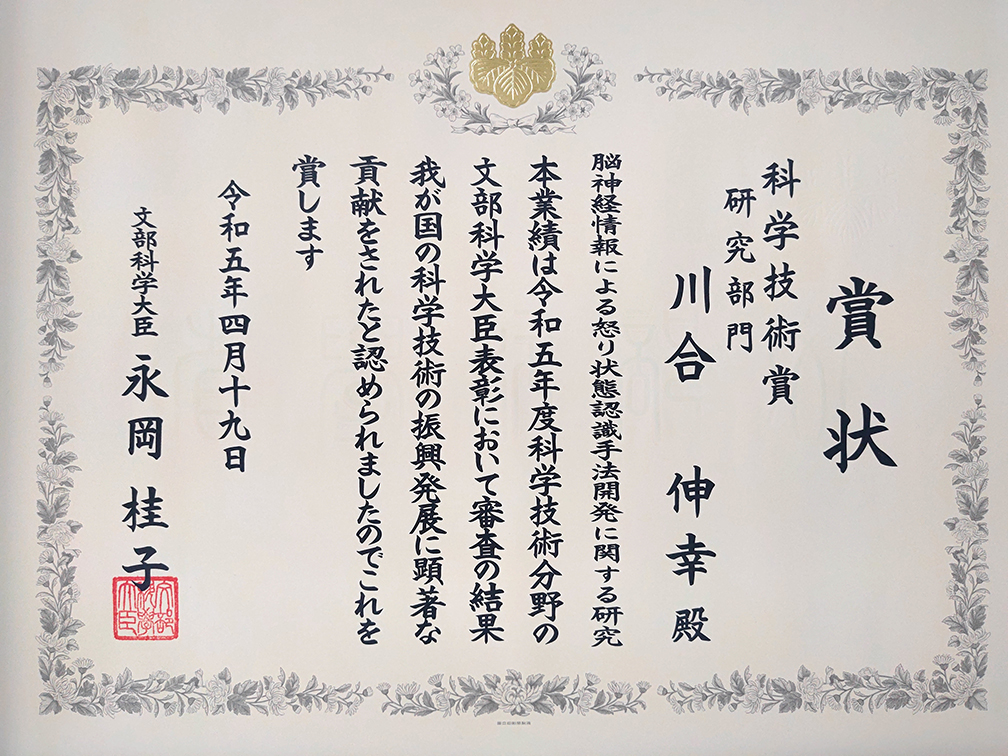 賞状
科学技術賞
研究部門
川合 伸幸 殿
脳神経情報による怒り状態認識手法開発に関する研究
本業績は令和五年度科学技術分野の
文部科学大臣表彰において審査の結果
我が国の科学技術の振興発展に顕著な
貢献をされたと認められましたのでこれを
賞します
令和五年四月十九日
文部科学大臣 永岡 桂子
文部科学大臣